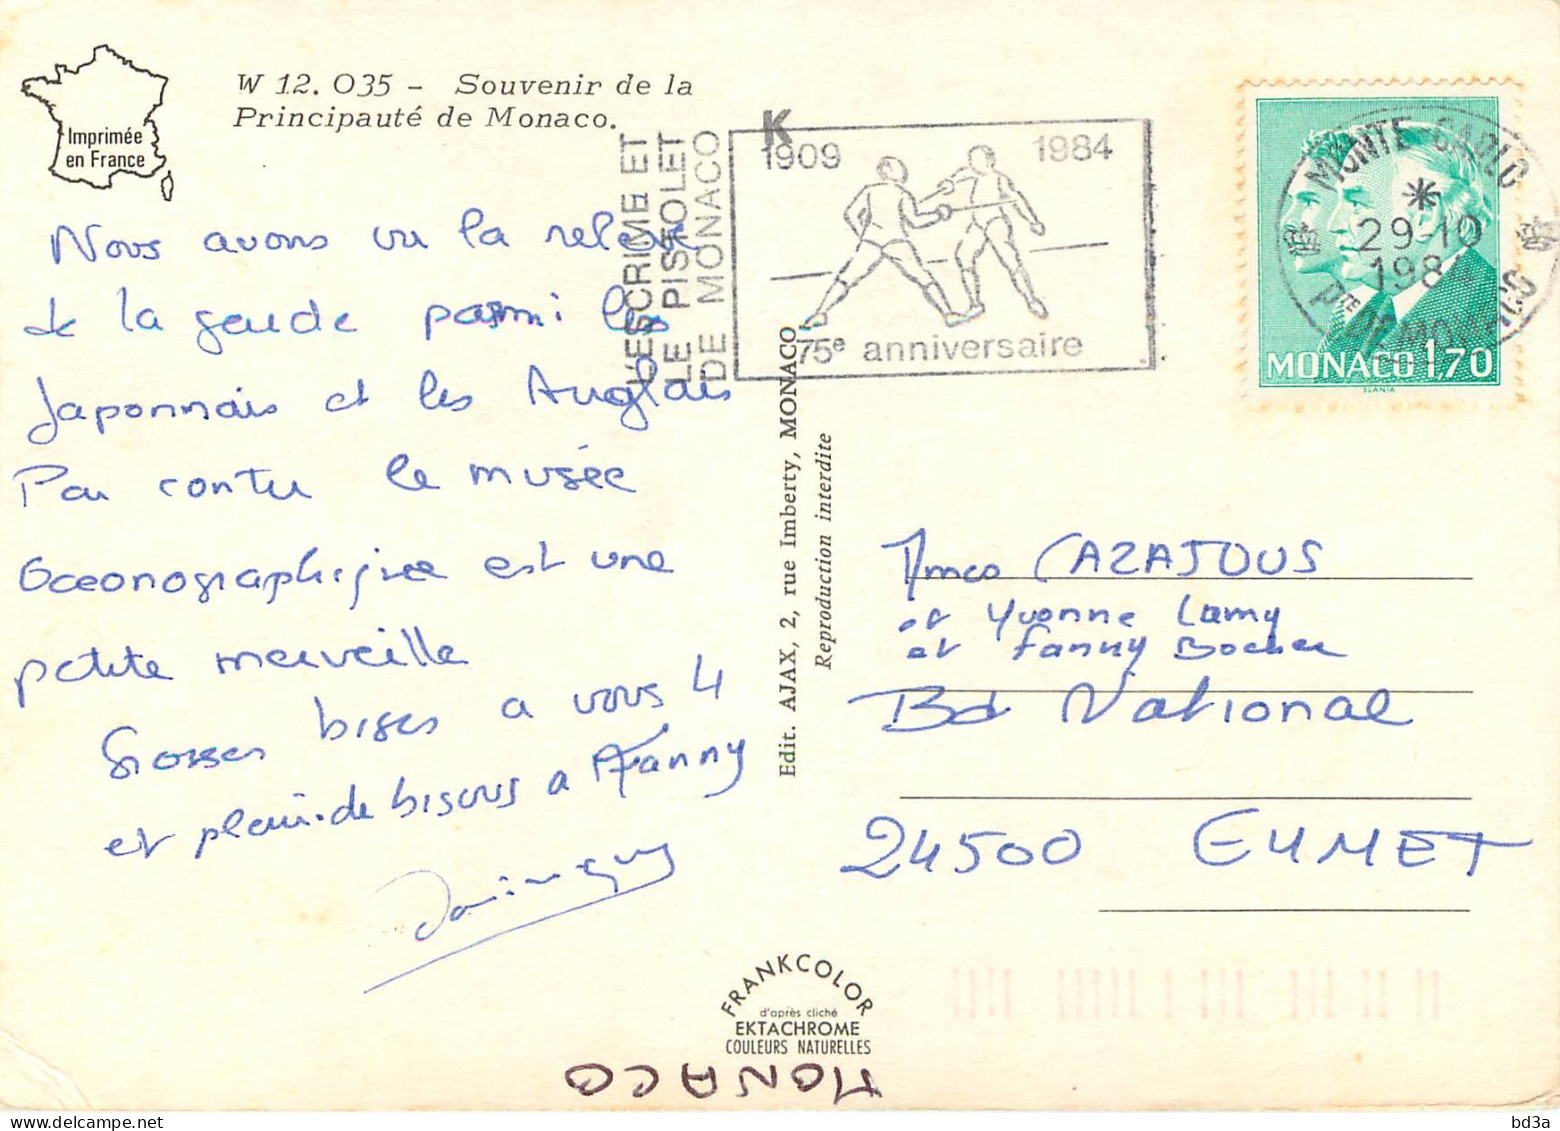 Imprimée
en France
W 12. 035 - Souvenir de la
Principauté de Monaco.
L'ESCRIME ET
LE PISTOLET
DE MONACO
K
1909 1984
75e anniversaire
MONTE-CARLO
29-10
1984
Pte DE MONACO
MONACO 1,70
SLANIA
Nous avons vu la relève
de la garde parmi les
Japonnais et les Anglais
Par contre le musée
Oceonographique est une
petite merveille
Grosses bises a vous 4
et plein de bisous a Fanny
Edit. AJAX, 2, rue Imberty, MONACO
Reproduction interdite
Mmes CAZAJOUS
et Yvonne Lamy
et Fanny Bocher
Bd National
24500 EYMET
FRANKCOLOR
d'après cliché
EKTACHROME
COULEURS NATURELLES
MONACO
bd3a